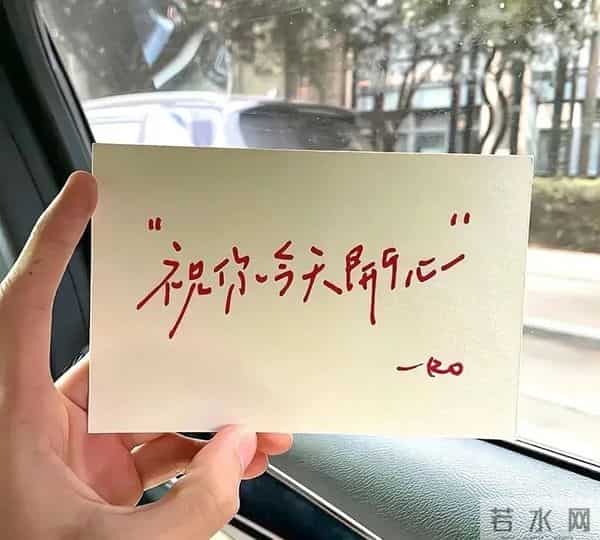 "祝你今天開心"
一RO
若水网